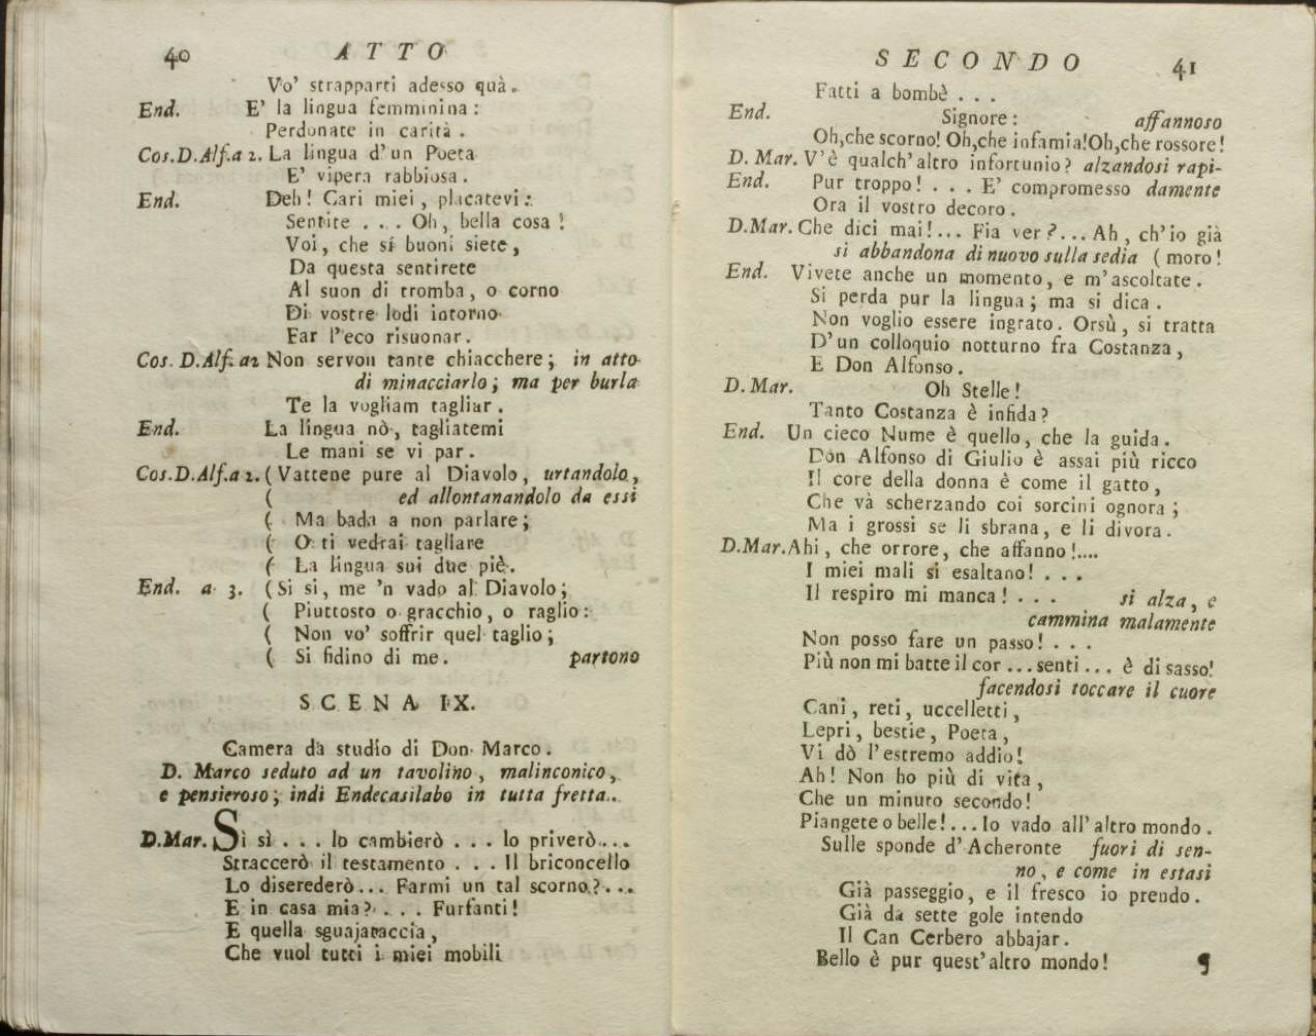 40 ATTO
Vo' strapparti adesso quà.
End. E' la lingua femminina:
Perdonate in carità.
Cos.D.Alf.a 2. La lingua d'un Poeta
E' vipera rabbiosa.
End. Deh! Cari miei, placatevi:
Sentite . . . Oh, bella cosa!
Voi, che sì buoni siete,
Da questa sentirete
Al suon di tromba, o corno
Di vostre lodi intorno
Far l'eco risuonar.
Cos. D.Alf. a2 Non servon tante chiacchere; in atto
di minacciarlo; ma per burla
Te la vogliam tagliar.
End. La lingua nò, tagliatemi
Le mani se vi par.
Cos.D.Alf.a 2. ( Vattene pure al Diavolo, urtandolo,
( ed allontanandolo da essi
( Ma bada a non parlare;
( O ti vedrai tagliare
( La lingua sui due piè.
End. a 3. ( Si si, me 'n vado al Diavolo;
( Piuttosto o gracchio, o raglio:
( Non vo' soffrir quel taglio;
( Si fidino di me. partono
SCENA IX.
Camera da studio di Don Marco.
D. Marco seduto ad un tavolino, malinconico,
e pensieroso; indi Endecasilabo in tutta fretta.
D.Mar. Si sì . . . Io cambierò . . . Io priverò....
Straccerò il testamento . . . Il briconcello
Lo diserederò... Farmi un tal scorno?...
E in casa mia? . . . Furfanti!
E quella sguajataccia,
Che vuol tutti i miei mobili
SECONDO 41
Fatti a bombè . . .
End. Signore: affannoso
Oh,che scorno! Oh,che infamia!Oh,che rossore!
D. Mar. V'è qualch'altro infortunio? alzandosi rapi-
End. Pur troppo! . . . E' compromesso damente
Ora il vostro decoro.
D.Mar. Che dici mai!... Fia ver?... Ah, ch'io già
si abbandona di nuovo sulla sedia ( moro!
End. Vivete anche un momento, e m'ascoltate.
Si perda pur la lingua; ma si dica.
Non voglio essere ingrato. Orsù, si tratta
D'un colloquio notturno fra Costanza,
E Don Alfonso.
D. Mar. Oh Stelle!
Tanto Costanza è infida?
End. Un cieco Nume è quello, che la guida.
Don Alfonso di Giulio è assai più ricco
Il core della donna è come il gatto,
Che và scherzando coi sorcini ognora;
Ma i grossi se li sbrana, e li divora.
D.Mar. Ahi, che orrore, che affanno!....
I miei mali si esaltano! . . .
Il respiro mi manca! . . . si alza, e
cammina malamente
Non posso fare un passo! . . .
Più non mi batte il cor ... senti ... è di sasso!
facendosi toccare il cuore
Cani, reti, uccelletti,
Lepri, bestie, Poeta,
Vi dò l'estremo addio!
Ah! Non ho più di vita,
Che un minuto secondo!
Piangete o belle!...Io vado all'altro mondo.
Sulle sponde d'Acheronte fuori di sen-
no, e come in estasi
Già passeggio, e il fresco io prendo.
Già da sette gole intendo
Il Can Cerbero abbajar.
Bello è pur quest'altro mondo!